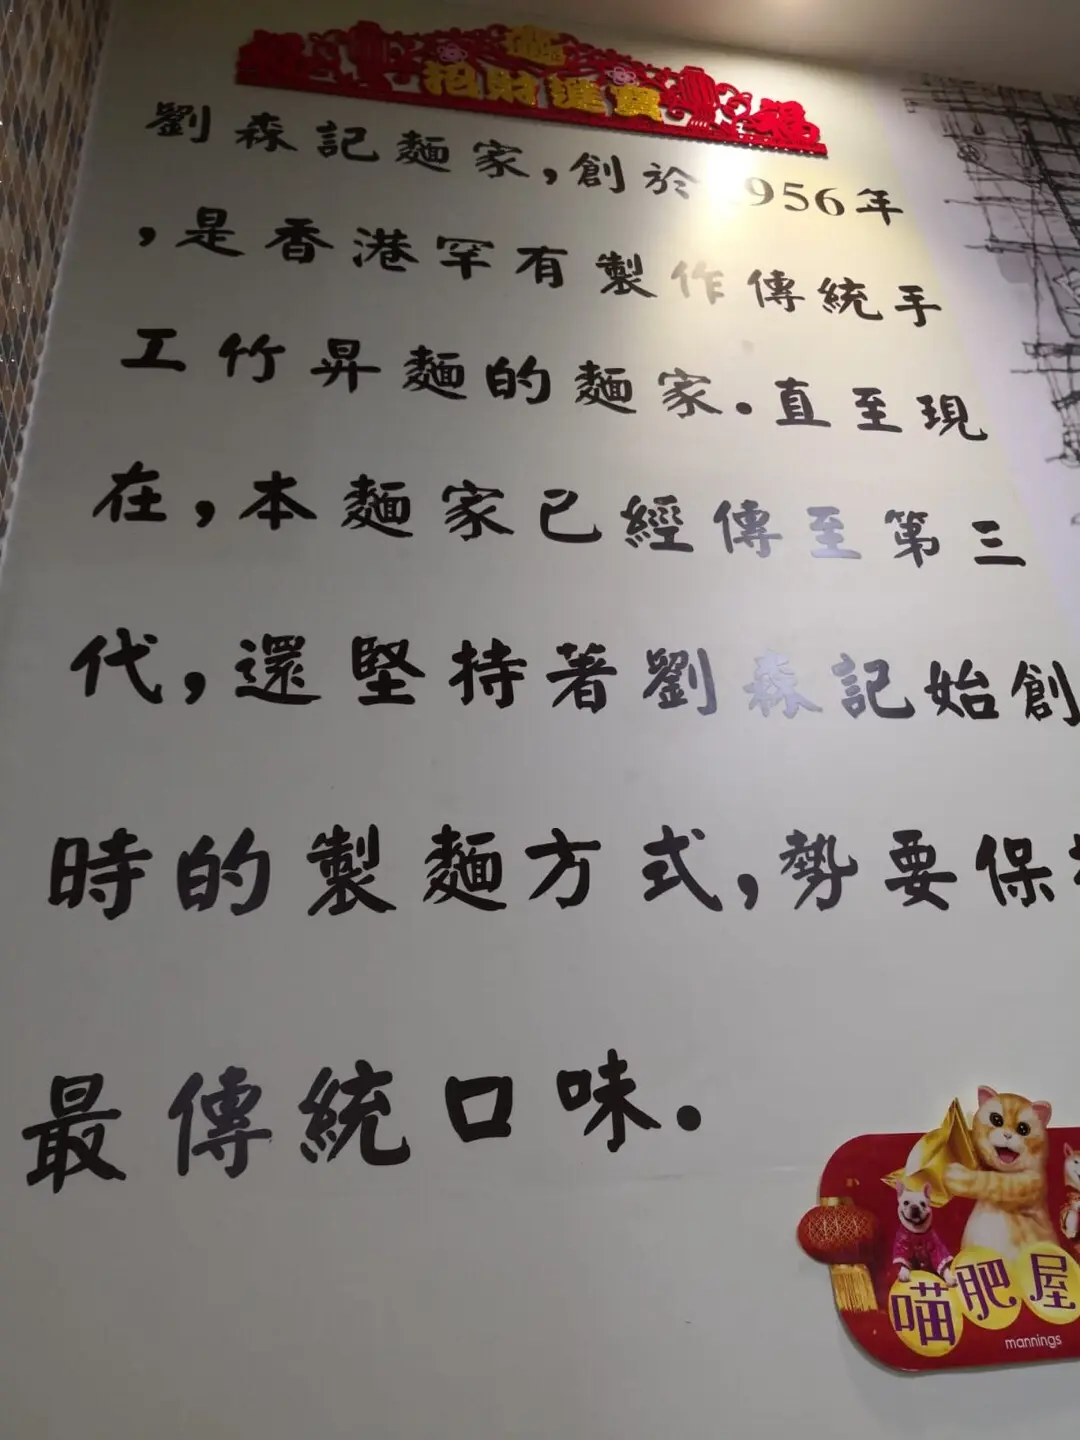 招財進寶
劉森記麵家,創於1956年
,是香港罕有製作傳統手
工竹昇麵的麵家.直至現
在,本麵家已經傳至第三
代,還堅持著劉森記始創
時的製麵方式,勢要保
最傳統口味.
喵肥屋
mannings